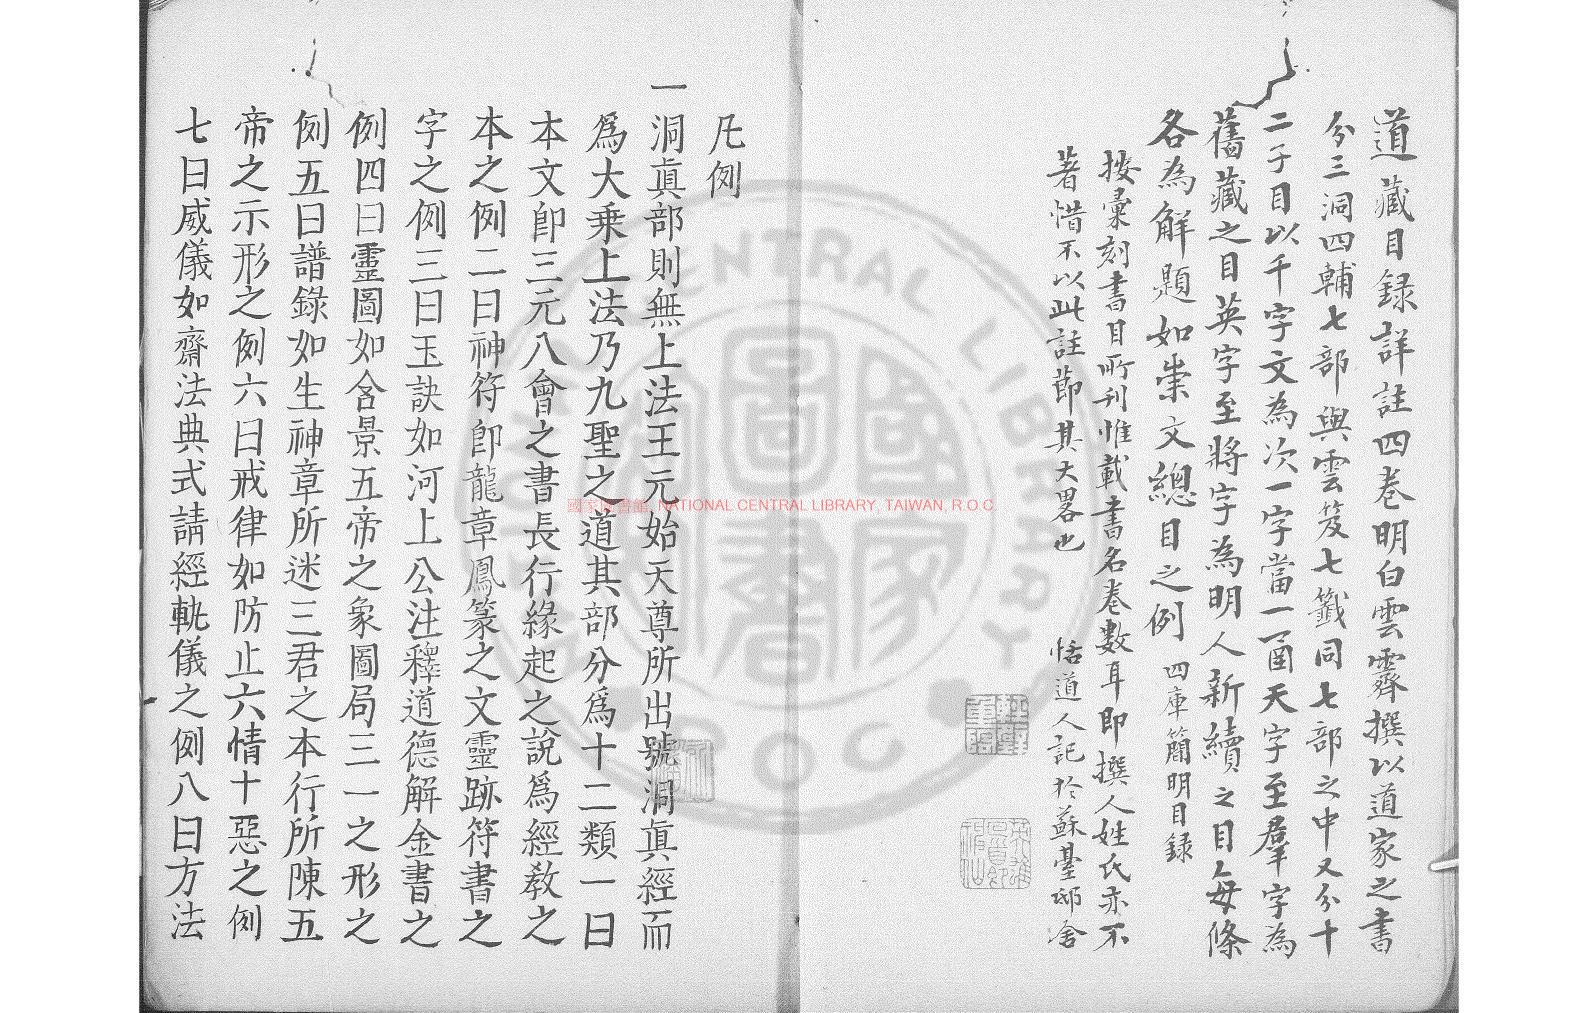 道藏目録詳註四卷明白雲霽撰以道家之書
分三洞四輔七部與雲笈七籤同七部之中又分十
二子目以千字文為次一字當一函天字至羣字為
舊藏之目英字至將字為明人新續之目每條
各為解題如崇文總目之例 四庫簡明目録
按彙刻書目所刊惟載書名卷數耳即撰人姓氏亦不
著惜不以此註節其大畧也 恬道人記於蘇臺邸舍
凡例
一洞眞部則無上法王元始天尊所出號洞眞經而
爲大乗上法乃九聖之道其部分爲十二類一曰
本文卽三元八會之書長行緣起之說爲經教之
本之例二曰神符卽龍章鳳篆之文靈跡符書之
字之例三曰玉訣如河上公注釋道德解金書之
例四曰靈圖如含景五帝之象圖局三一之形之
例五曰譜錄如生神章所述三君之本行所陳五
帝之示形之例六曰戒律如防止六情十惡之例
七曰威儀如齋法典式請經軌儀之例八曰方法
國家圖書館, NATIONAL CENTRAL LIBRARY, TAIWAN, R.O.C.
NATIONAL CENTRAL LIBRARY
R O C
國家圖書